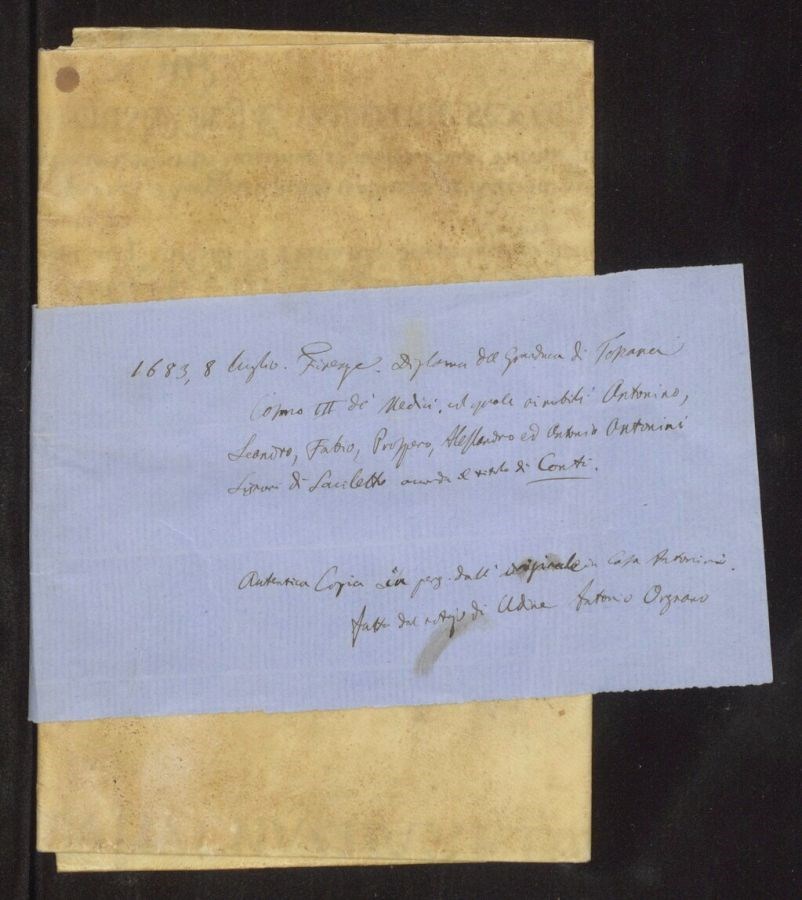 1683, 8 luglio. Firenze. Diploma del Granduca di Toscana
Cosmo III de' Medici, col quale ai nobili Antonino,
Leandro, Fabio, Prospero, Alessandro ed Antonio Antonini
Signori di Saciletto accorda il titolo di Conti.
Autentica Copia in perg. dall' originale in Casa Antonini.
fatta dal notajo di Udine Antonio Orgnano